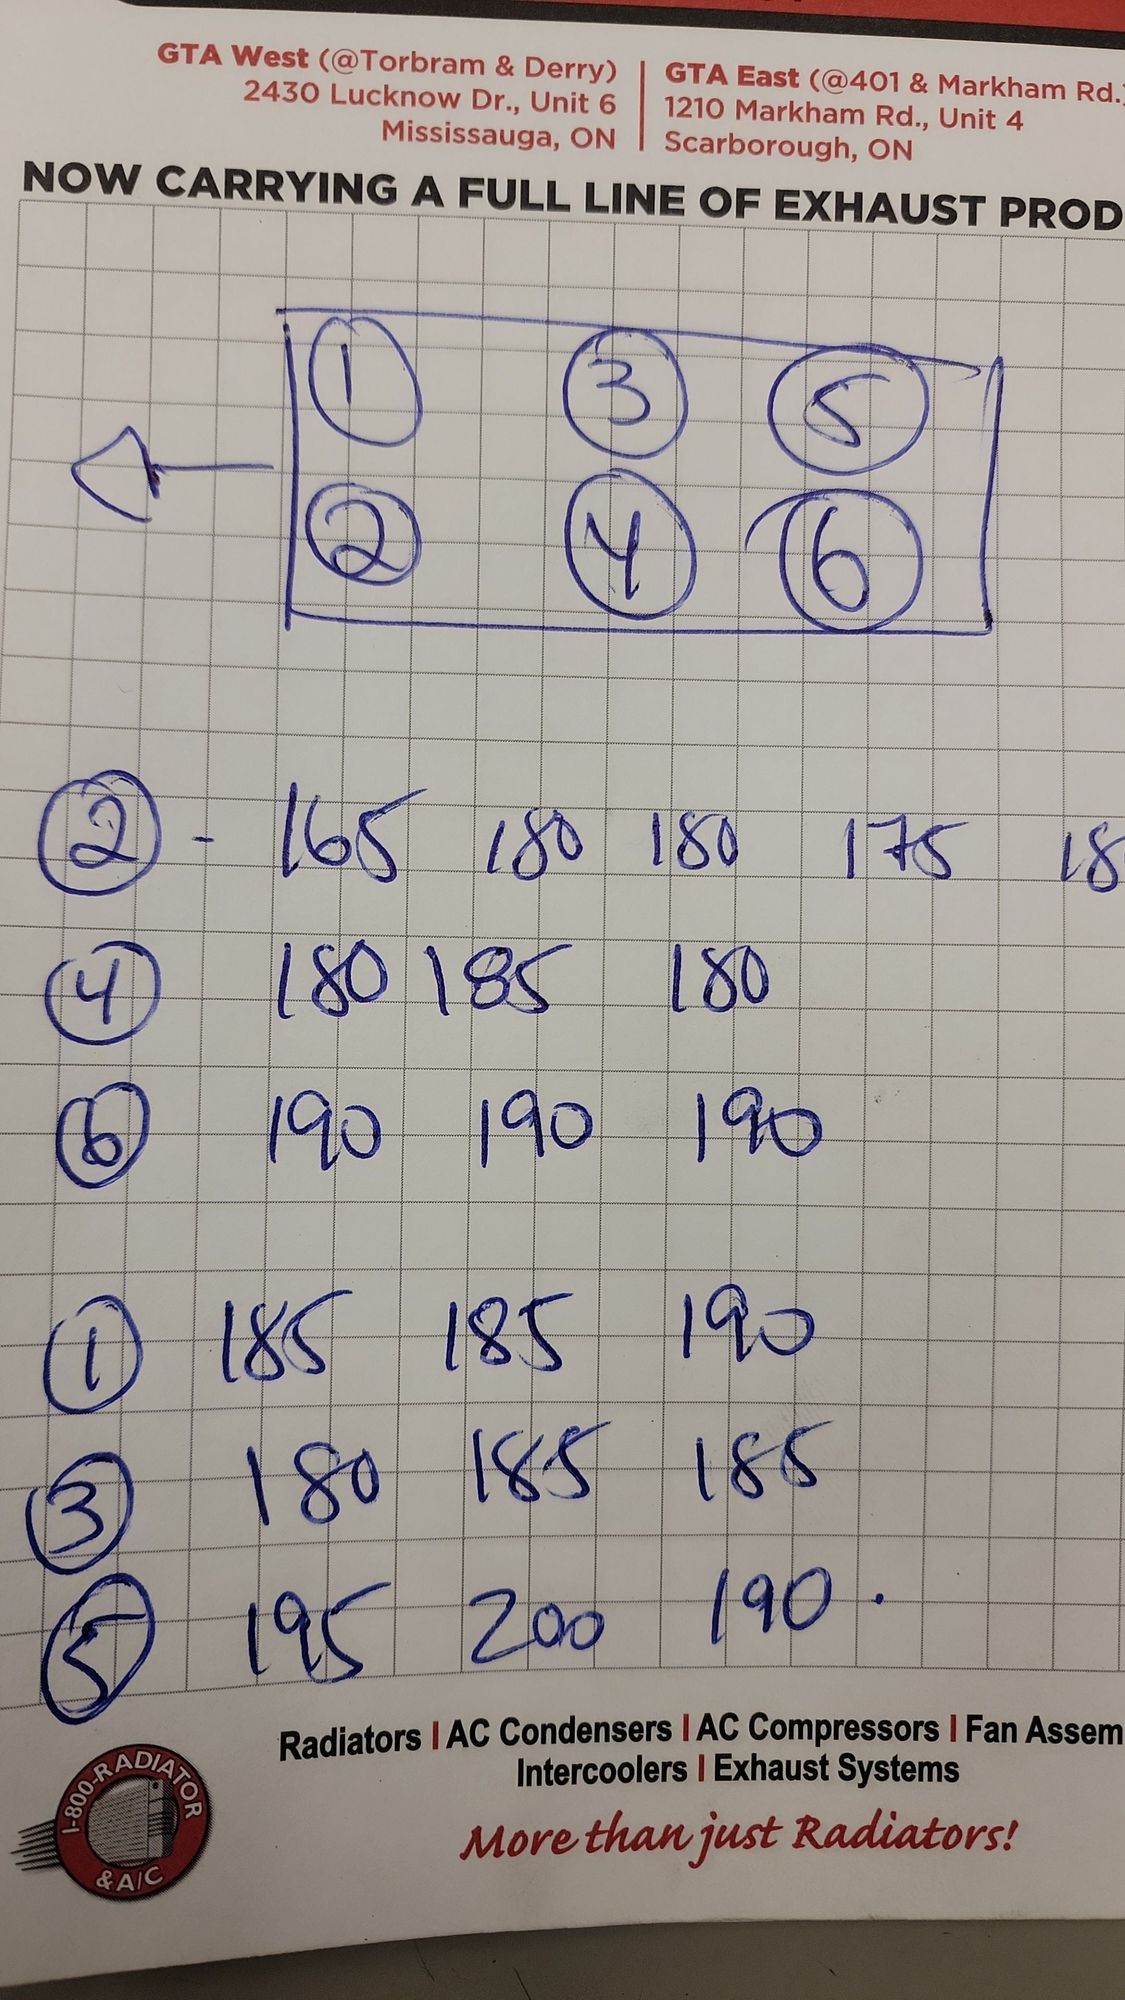 GTA West (@Torbram & Derry)
2430 Lucknow Dr., Unit 6
Mississauga, ON
GTA East (@401 & Markham Rd.)
1210 Markham Rd., Unit 4
Scarborough, ON
NOW CARRYING A FULL LINE OF EXHAUST PROD
1 3 5
2 4 6
2 - 165 180 180 175 18
4 180 185 180
6 190 190 190
1 185 185 190
3 180 185 185
5 195 200 190.
Radiators | AC Condensers | AC Compressors | Fan Assem
Intercoolers | Exhaust Systems
More than just Radiators!
1-800-RADIATOR
& A/C